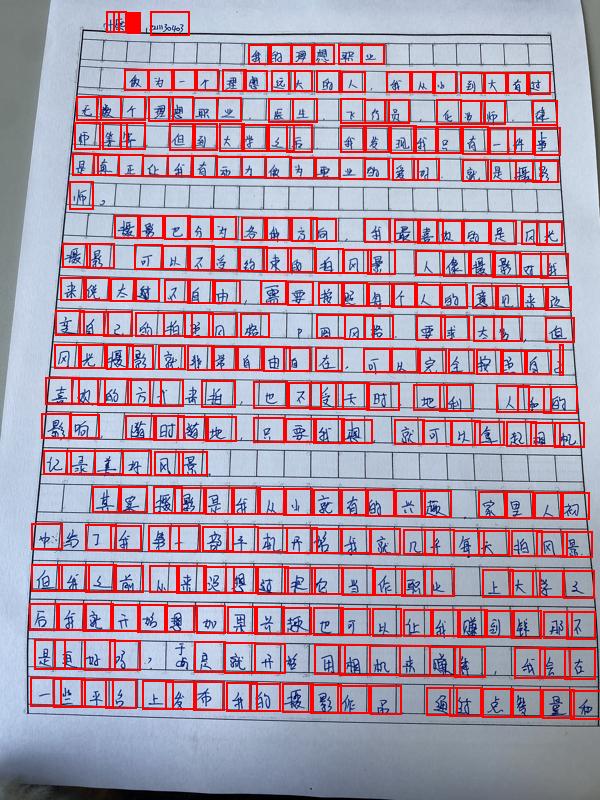 我的理想职业
做为一个理想远大的人，我从小到大有过
无数个理想职业，医生，飞行员，化妆师，律
师等等，但到大学之后，我发现我只有一件事
是真正让我有动力做为职业的爱好，就是摄影
师。
摄影也分为各种方向，我最喜欢的是风光
摄影，可以不受约束的拍风景，人像摄影对我
来说太过不自由，需要按照每个人的意见来改
变自己的拍照风格，P图风格，要求太多，但
风光摄影就非常自由自在，可以完全按照自己
喜欢的方式来拍，也不受天时，地利，人和的
影响，随时随地，只要我想，就可以拿起相机
记录美好风景。
其实摄影是我从小就有的兴趣，家里人初
中给了我第一部手机开始我就几乎每天拍风景
但我之前从来没想过把它当作职业，上大学之
后我就开始想如果兴趣也可以让我赚到钱那不
是更好吗？于是就开始用相机来赚钱，我会在
一些平台上发布我的摄影作品，通过点赞量和